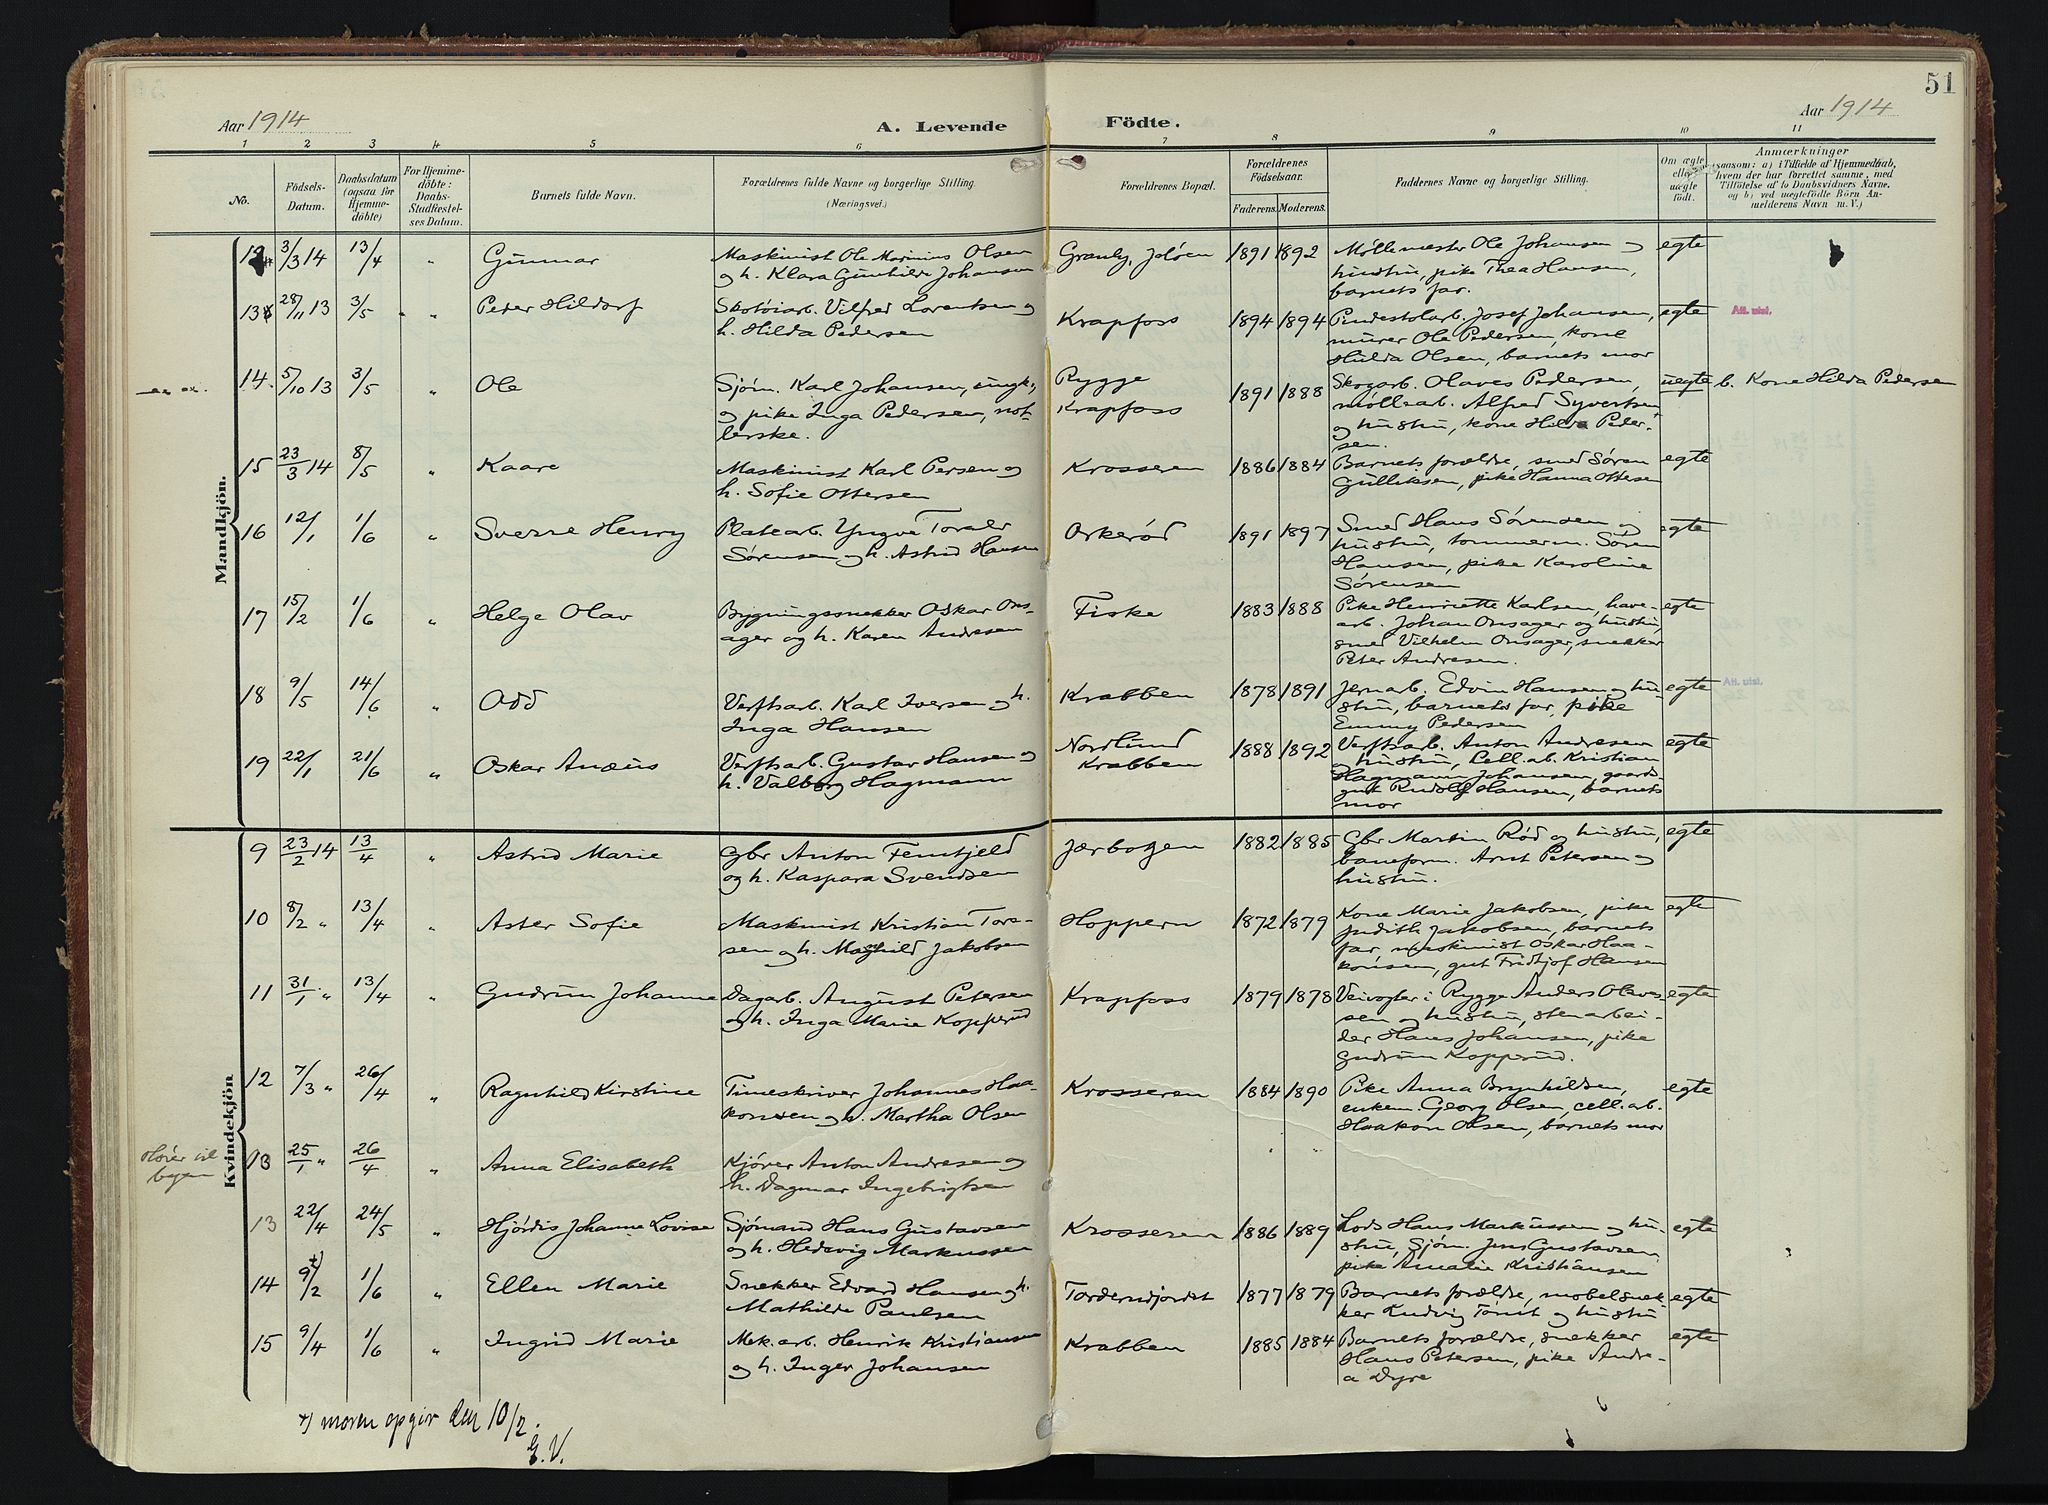 51
Aar 1914
A. Levende Födte.
Aar 1914
1 2 3 4 5 6 7 8 9 10 11
No.
Födsels-
Datum.
Daabsdatum
(ogsaa for
Hjemme-
döbte)
For Hjemme-
döbte:
Daabs-
Stadfæstel-
ses Datum.
Barnets fulde Navn.
Forældrenes fulde Navne og borgerlige Stilling.
(Næringsvei.)
Forældrenes Bopæl.
Forældrenes
Födselsaar.
Faderens. Moderens.
Faddernes Navne og borgerlige Stilling.
Om ægte
eller
uægte
født.
Anmærkninger
(saasom: a) i Tilfælde af Hjemmedaab,
hvem der har forrettet samme, med
Tilföielse af to Daabsvidners Navne,
og b) ved uægtefödte Börn An-
melderens Navn m. V.)
Mandkjön.
12 3/3 14 13/4 " Gunnar
Maskinist Ole Marinius Olsen
og h. Klara Gunhilde Johansen
Grønly, Jeløen 1891 1892
Møllemester Ole Johansen og
hustru, pike Thea Hansen,
barnets far.
egte
13 28/11 13 3/5 " Peder Hildorf
Skotøiarb. Vilfred Lorentsen og
h. Hilda Pedersen
Krapfoss 1894 1894
Pindestolarb. Josef Johansen,
murer Ole Pedersen, kone
Hulda Olsen, barnets mor
egte Att. utst.
14. 5/10 13 3/5 " Ole
Sjøm. Karl Johansen, ungk.,
og pike Inga Pedersen, not-
lerske.
Rygge
Krapfoss
1891 1888
Skogarb. Olaves Pedersen,
møllearb. Alfred Syvertsen
og hustru, kone Hilda Peder-
sen.
uegte b. Kone Hilda Pedersen
15 23/3 14 8/5 " Kaare
Maskinist Karl Persen og
h. Sofie Ottersen
Krosseren 1886 1884
Barnets forældre, smed Søren
Gulliksen, pike Hanna Ottesen
egte
16 12/1 1/6 " Sverre Henry
Platearb. Yngve Torald
Sørensen og h. Astrid Hansen
Orkerød 1891 1897
Smed Hans Sørensen og
hustru, tømmerm. Søren
Hansen, pike Karoline
Sørensen
egte
17 15/2 1/6 " Helge Olav
Bygningssnekker Oskar Ons-
ager og h. Karen Andresen
Fiske 1883 1888
Pike Henriette Karlsen, have-
arb. Johan Onsager og hustru,
smed Vilhelm Onsager, snekker
Peter Andresen.
egte
18 9/5 14/6 " Odd
Verftsarb. Karl Iversen og h.
Inga Hansen
Krabben 1878 1891
Jernarb. Edvin Hansen og hu-
stru, barnets far, pike
Emmy Pedersen
egte Att. utst.
19 22/1 21/6 " Oskar Anæus
Verftsarb. Gustav Hansen og
h. Valborg Hagmann
Nordlund
Krabben
1888 1892
Verftsarb. Anton Andresen
og hustru, Cell. ab. Kristian
Hagmann Johansen, gaards-
gut Rudolf Hansen, barnets
mor
egte
Kvindekjön
9 23/2 14 13/4 " Astrid Marie
Gbr Anton Femtjeld
og h. Kaspara Svendsen
Jærbogen 1882 1885
Gbr Martin Rød og hustru,
baneform. Arnt Petersen og
hustru.
egte
10 8/2 " 13/4 " Aster Sofie
Maskinist Kristian Tore-
sen og h. Maghild Jakobsen
Hoppern 1872 1879
Kone Marie Jakobsen, pike
Judith Jakobsen, barnets
far, maskinist Oskar Haa-
konsen, gut Fridtjof Hansen
egte
11 31/1 " 13/4 " Gudrun Johanne
Dagarb. August Petersen
og h. Inga Marie Kopperud
Krapfoss 1879 1878
Veivogter i Rygge Anders Olaves-
sen og hustru, stenarbei-
der Hans Johansen, pike
Gudrun Kopperud.
egte
12 7/3 " 26/4 " Ragnhild Kirstine
Timeskriver Johannes Haa-
konsen og h. Martha Olsen
Krosseren 1884 1890
Pike Anna Brynhildsen,
enkem. Georg Olsen, cell. ab.
Haakon Olsen, barnets mor
egte
Hører til
byen
13 25/1 " 26/4 " Anna Elisabeth
Kjører Anton Andresen og
h. Dagmar Ingebrigtsen
13 22/4 24/5 " Hjördis Johanne Lovise
Sjømand Hans Gustavsen
og h. Hedevig Markussen
Krosseren 1886 1889
Lods Hans Markussen og hu-
stru, Sjøm. Jens Gustavsen,
pike Amalie Kristiansen
egte
14 9/2 x) 1/6 " Ellen Marie
Snekker Edvard Hansen og h.
Mathilde Paulsen
Tordersdjordet 1877 1879
Barnets forældre, møbelsnek-
ker Ludvig Tørnt og hustru
egte
15 9/4 1/6 " Ingrid Marie
Mek. arb. Henrik Kristiansen
og h. Inger Johansen
Krabben 1885 1884
Barnets forældre, snekker
Hans Petersen, pike Andre-
a Dyre
egte
x) moren opgir den 10/2.
G.V.